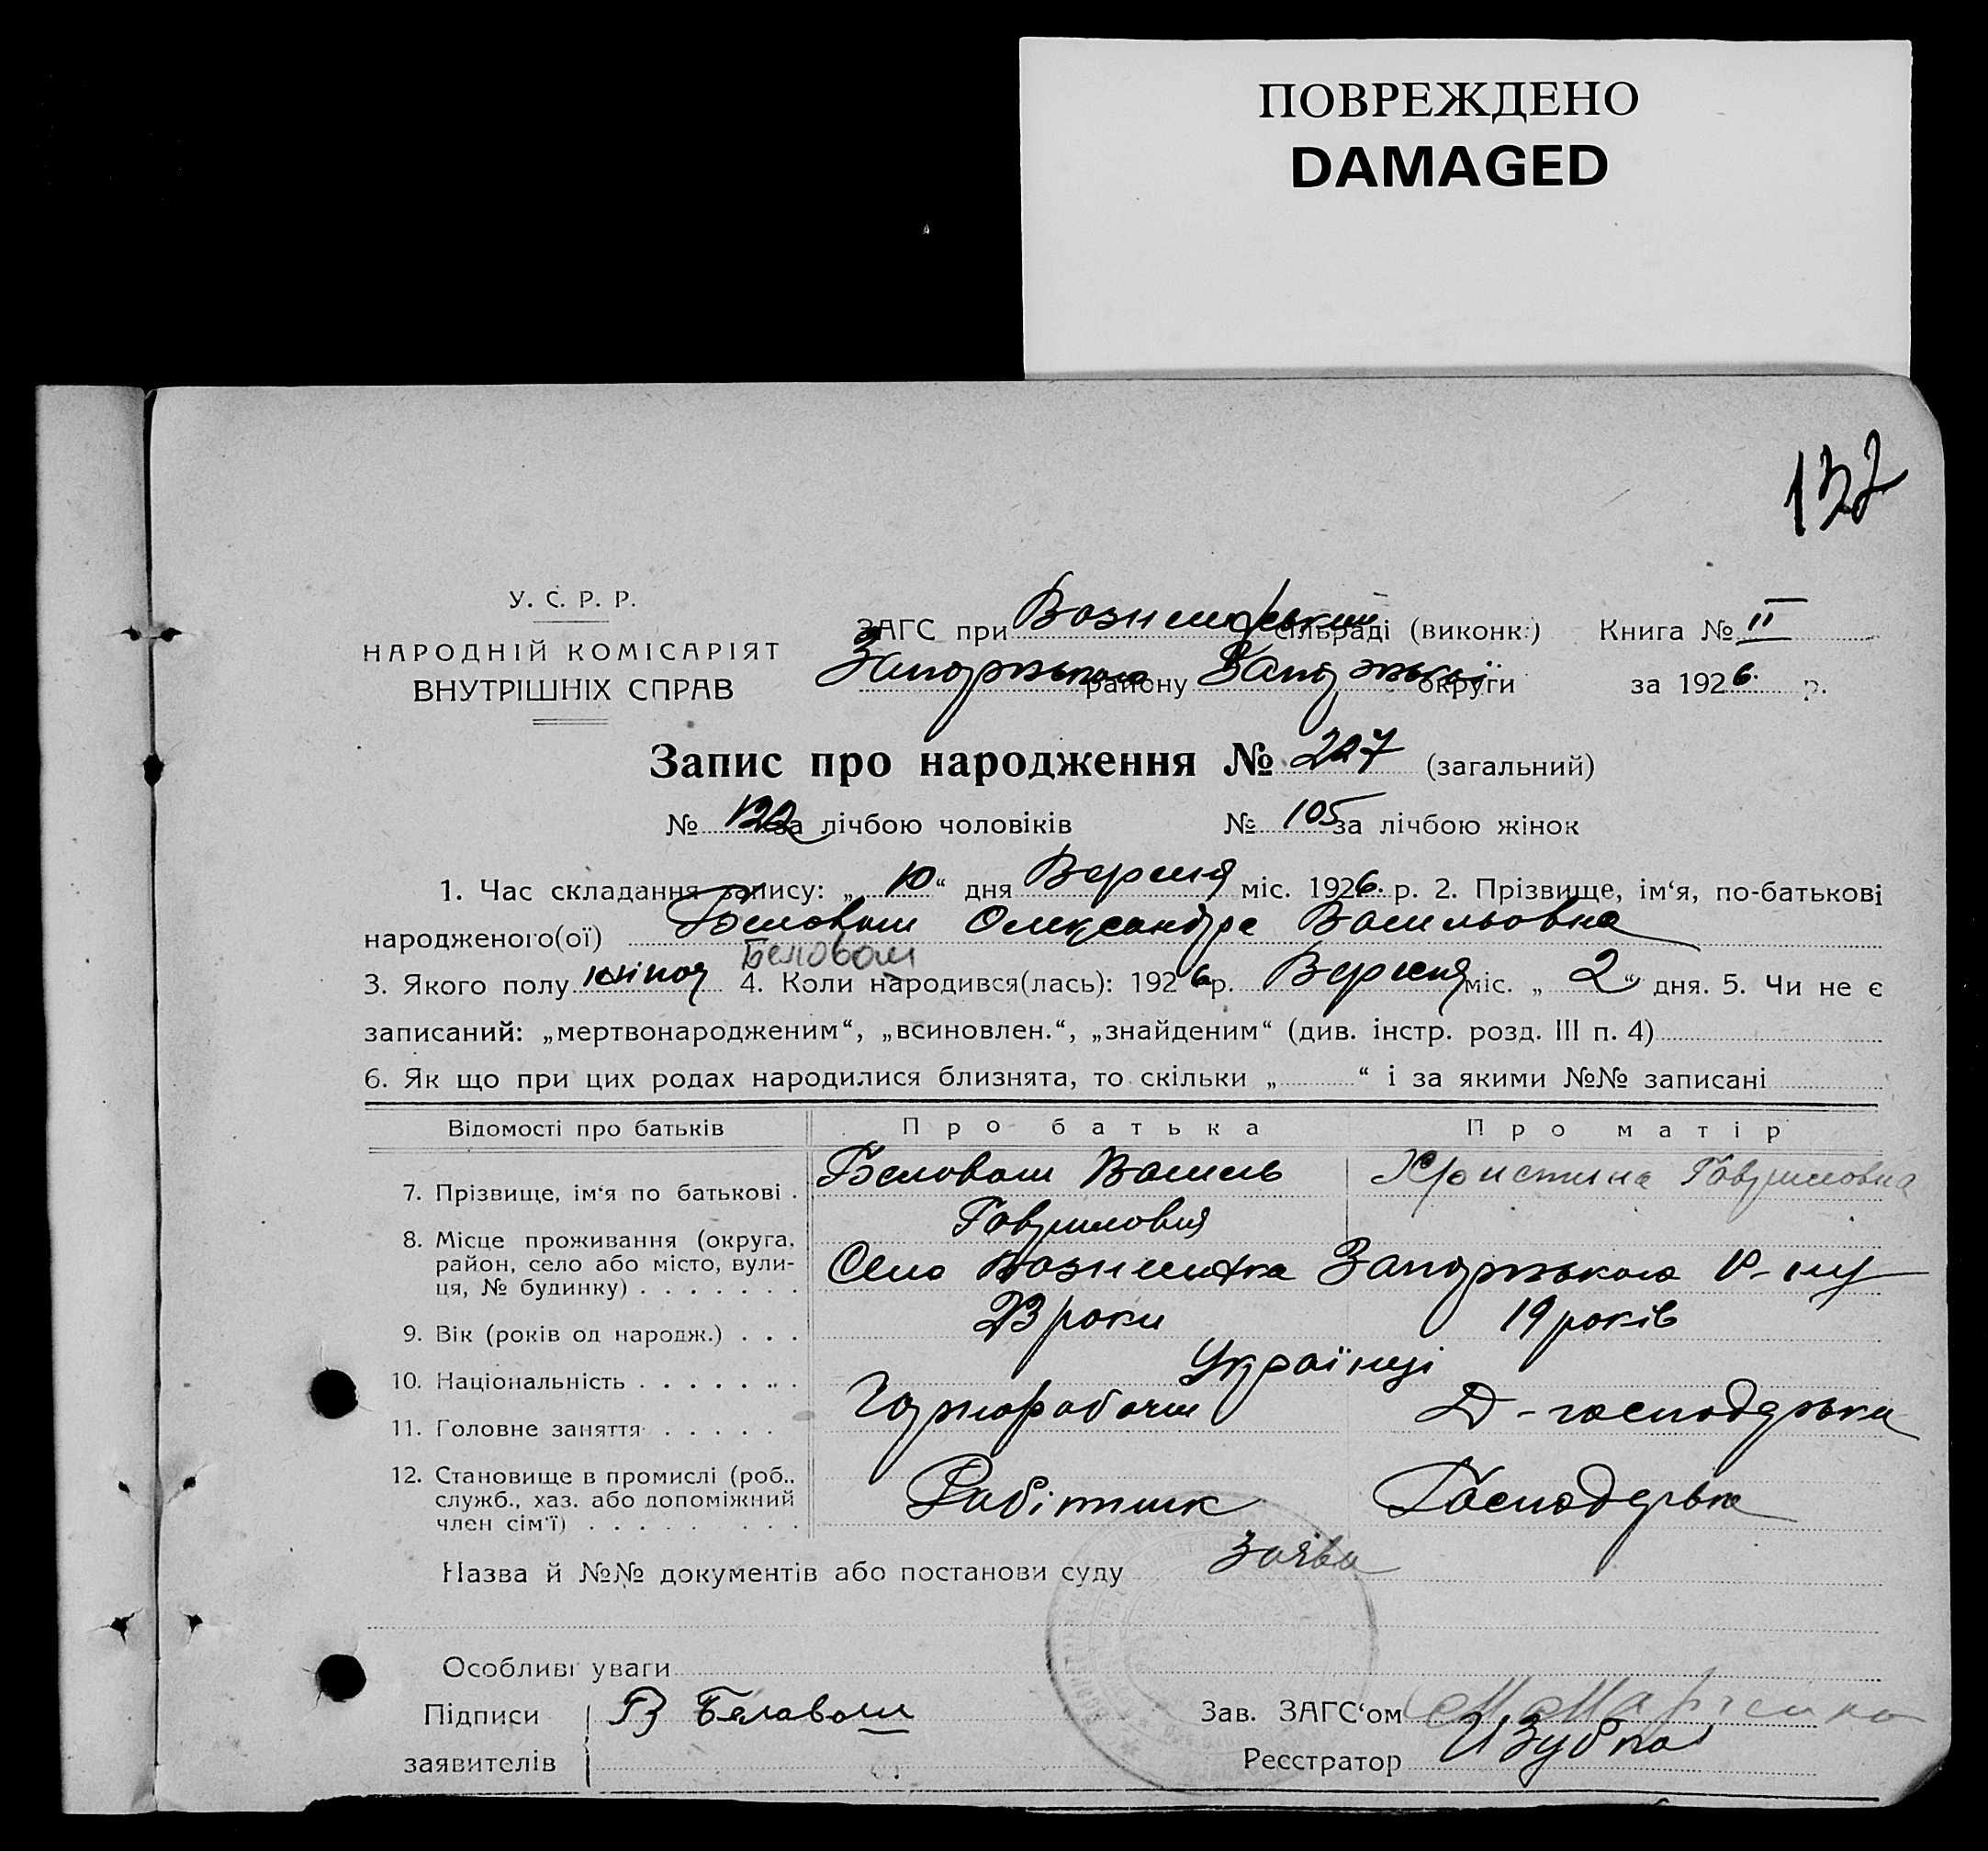 ПОВРЕЖДЕНО
DAMAGED
132
У. С. Р. Р.
НАРОДНІЙ КОМІСАРІЯТ
ВНУТРІШНІХ СПРАВ
ЗАГС при сільраді (виконк.) Книга № II
району округи за 1926 р.
Запис про народження № 227 (загальний)
№ 122 за лічбою чоловіків № 105 за лічбою жінок
1. Час складання запису: „ 10 “ дня Вересня міс. 1926. р. 2. Прізвище, ім‘я, по-батькові
народженого(ої) Беловол Олександра Васильовна
Беловол
3. Якого полу жіноч 4. Коли народився(лась): 1926 р. Вересня міс. „ 2 “ дня. 5. Чи не є
записаний: „мертвонародженим“, „всиновлен.“, „знайденим“ (див. інстр. розд. III п. 4)
6. Як що при цих родах народилися близнята, то скільки „ “ і за якими №№ записані
Відомості про батьків Про батька Про матір
7. Прізвище, ім‘я по батькові . Беловол Василь Христина Гавриловна
Гаврилович
8. Місце проживання (округа,
район, село або місто, вули-
ця, № будинку) . . . . . . . Село Запорізького р-ну
9. Вік (років од народж.) . . . 23 роки 19 років
10. Національність . . . . . . . Українці
11. Головне заняття . . . . . Чорнорабочий Д-господарка
12. Становище в промислі (роб.,
служб., хаз. або допоміжний
член сім‘ї) . . . . . . . . . Робітник Господарка
Назва й №№ документів або постанови суду Заява
Особливі уваги
Підписи В Беловол Зав. ЗАГС‘ом
заявителів Реєстратор